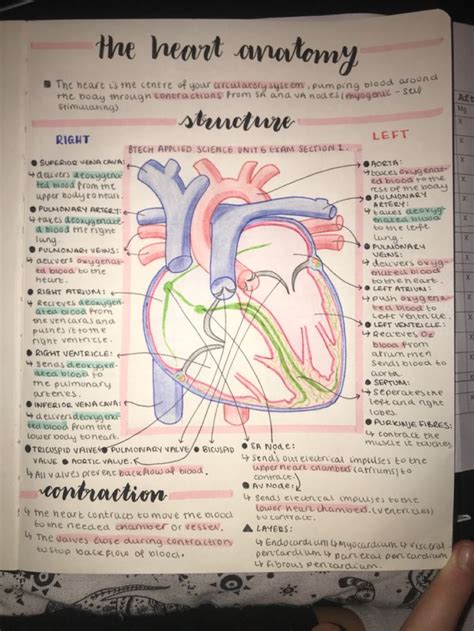 the heart anatomy
The heart is the centre of your circulatory system, pumping blood around
the body through contractions from SA and VA nodes (myogenic - self
stimulating)
structure
RIGHT
LEFT
BTECH APPLIED SCIENCE UNIT 6 EXAM SECTION 1.
SUPERIOR VENA CAVA:
↳ delivers deoxygena
ted blood from the
upper body to heart.
PULMONARY ARTERY:
↳ takes deoxygenate
d blood the right
lung.
PULMONARY VEINS:
↳ delivers oxygena
ted blood to the
heart.
RIGHT ATRIUM:
↳ Recieves deoxygen
ated blood from
the ven cavas and
pushes it to the
right ventricle.
RIGHT VENTRICLE:
↳ Sends deoxygena
ated blood to
the pulmonary
arteries.
INFERIOR VENA CAVA:
↳ delivers deoxygena
ted blood from the
lower body to heart.
AORTA:
↳ takes oxygenat
ed blood to the
rest of the body
PULMONARY
ARTERY:
↳ takes deoxyg
enated blood
to the left
lung.
PULMONARY
VEINS:
↳ delivers oxygen
ated blood to
the heart.
LEFT ATRIUM:
↳ push oxygena
ted blood to
left ventricle.
LEFT VENTRICLE:
↳ Recieves
blood from
atrium then
sends blood to
aorta.
SEPTUM:
↳ Seperates the
left and right
lobes.
PURKINJE FIBRES:
↳ contract the
muscle it touches.
TRICUSPID VALVE PULMONARY VALVE BICUSPID
VALVE AORTIC VALVE.
↳ All valves prevent backflow of blood.
SA Node:
↳ Sends out electrical impulses to the
upper heart chamber (atriums) to
contract.
AV Node:
↳ Sends electrical impulses to the
lower heart chamber (ventricles)
to contract.
LAYERS:
↳ Endocardium ↳ Myocardium ↳ visceral
pericardium ↳ parietal pericardium
↳ fibrous pericardium.
contraction
↳ the heart contracts to move the blood
to the needed chamber or vessel.
↳ The valves close during contraction
to stop backflow of blood.